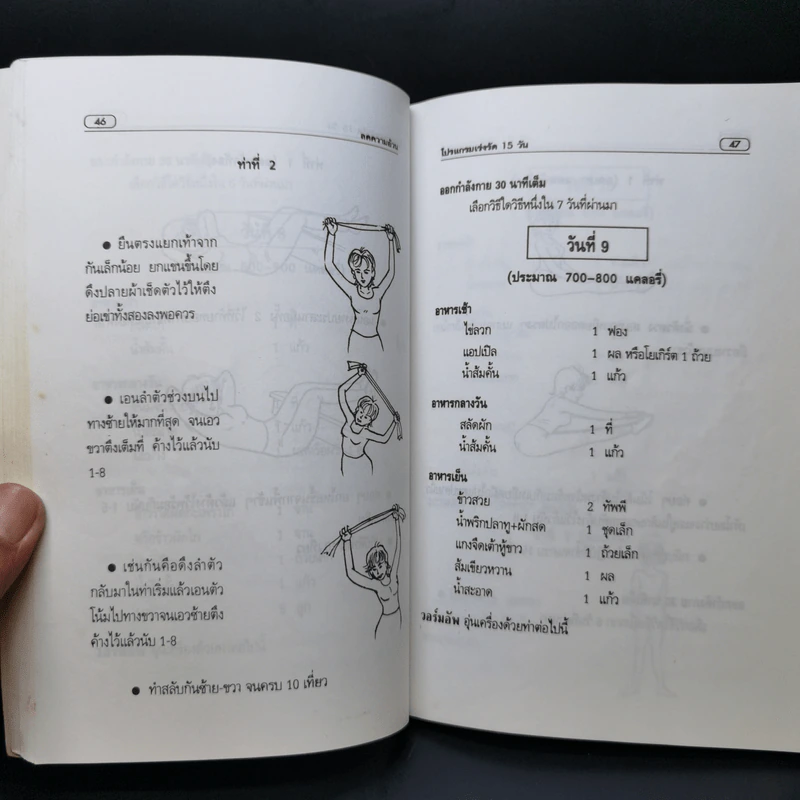 46
ลดความอ้วน
ท่าที่ 2
● ยืนตรงแยกเท้าจาก
กันเล็กน้อย ยกแขนขึ้นโดย
ดึงปลายผ้าเช็ดตัวไว้ให้ตึง
ย่อเข่าทั้งสองลงพอควร
● เอนลำตัวช่วงบนไป
ทางซ้ายให้มากที่สุด จนเอว
ขวาตึงเต็มที่ ค้างไว้แล้วนับ
1-8
● เช่นกันคือดึงลำตัว
กลับมาในท่าเริ่มแล้วเอนตัว
โน้มไปทางขวาจนเอวซ้ายตึง
ค้างไว้แล้วนับ 1-8
● ทำสลับกันซ้าย-ขวา จนครบ 10 เที่ยว
โปรแกรมเร่งรัด 15 วัน
47
ออกกำลังกาย 30 นาทีเต็ม
เลือกวิธีใดวิธีหนึ่งใน 7 วันที่ผ่านมา
วันที่ 9
(ประมาณ 700-800 แคลอรี่)
อาหารเช้า
ไข่ลวก 1 ฟอง
แอปเปิล 1 ผล หรือโยเกิร์ต 1 ถ้วย
น้ำส้มคั้น 1 แก้ว
อาหารกลางวัน
สลัดผัก 1 ที่
น้ำส้มคั้น 1 แก้ว
อาหารเย็น
ข้าวสวย 2 ทัพพี
น้ำพริกปลาทู+ผักสด 1 ชุดเล็ก
แกงจืดเต้าหู้ขาว 1 ถ้วยเล็ก
ส้มเขียวหวาน 1 ผล
น้ำสะอาด 1 แก้ว
วอร์มอัพ อุ่นเครื่องด้วยท่าต่อไปนี้